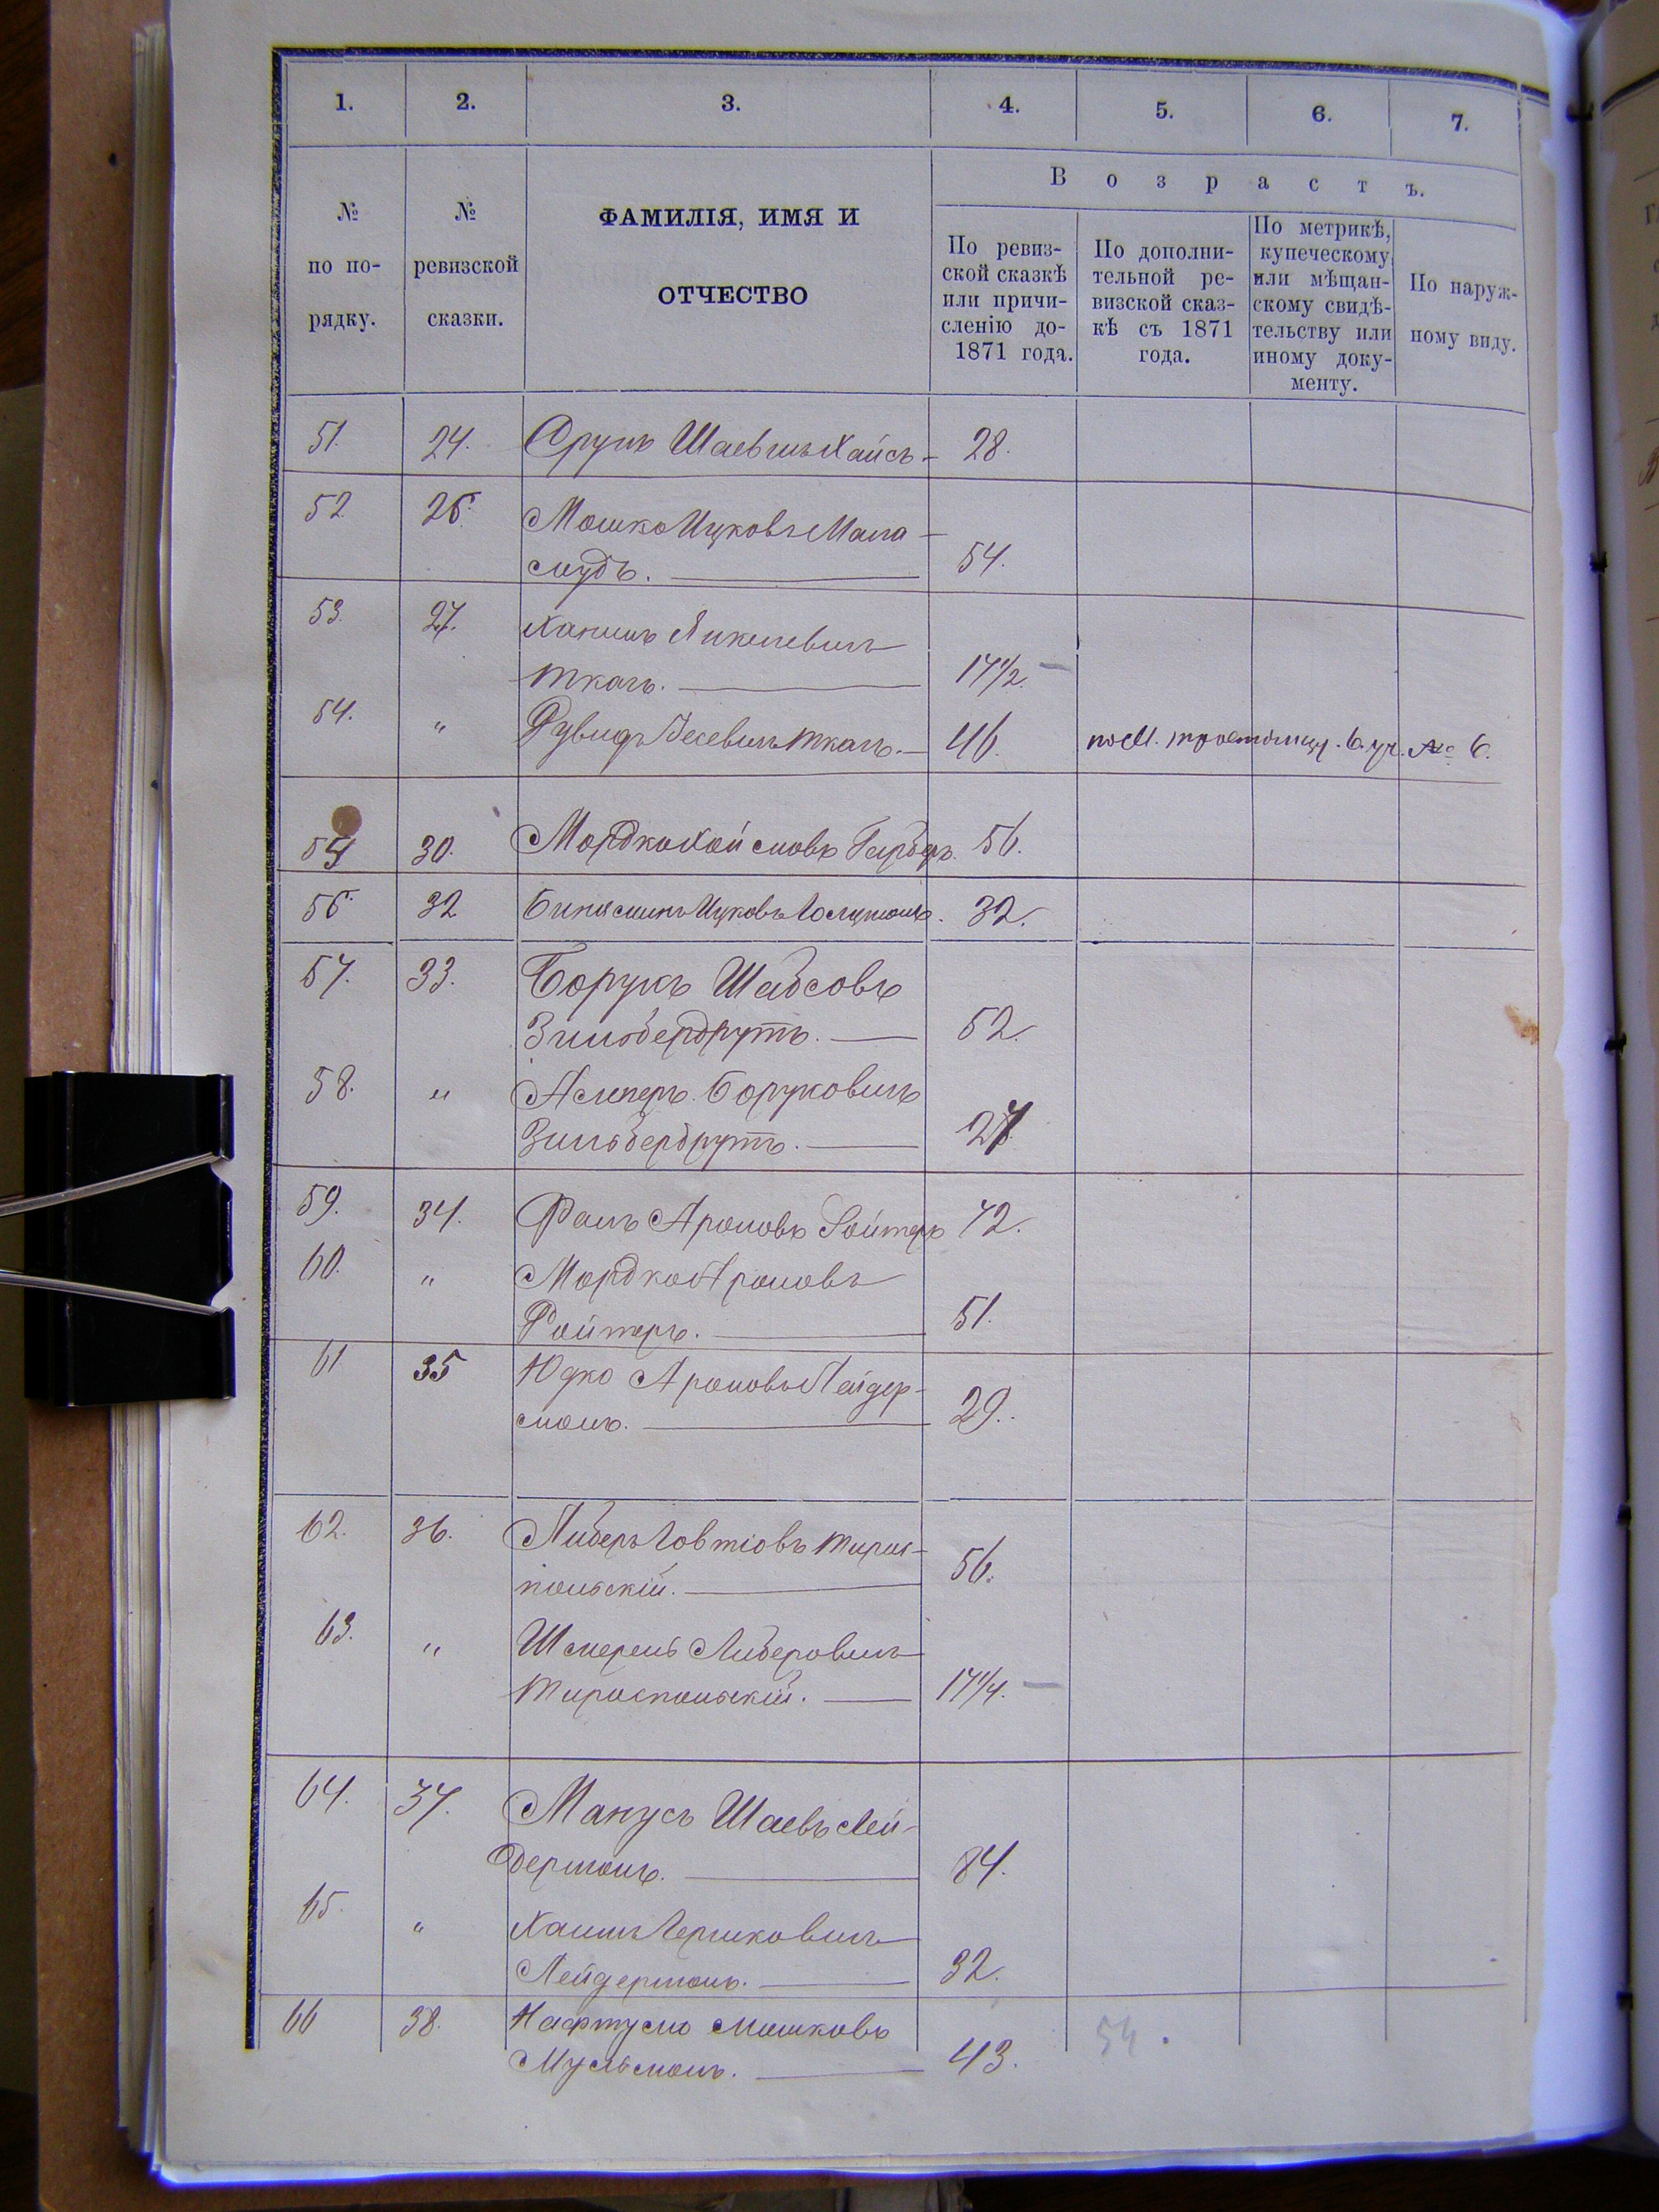 1. 2. 3. 4. 5. 6. 7.
В о з р а с т ъ.
№ по по-рядку.
№ ревизской сказки.
ФАМИЛІЯ, ИМЯ И
ОТЧЕСТВО
По ревиз-
ской сказкѣ
или причи-
сленію до-
1871 года.
По дополни-
тельной ре-
визской сказ-
кѣ съ 1871
года.
По метрикѣ,
купеческому
или мѣщан-
скому свидѣ-
тельству или
иному доку-
менту.
По наруж-
ному виду.
51. 24. Срулъ Шаевичъ Хаисъ 28.
52 26. Мошко Ицковъ Мала-
мудъ. 54.
53. 27. Хаимъ Янкелевичъ
Ткачъ. 17 1/2.
54. " Рувидъ Ткачъ. 46. по № 6.
55 30. Мордко Хаймовъ Герберъ. 56.
56. 32 Биніаминъ Ицковъ 32.
57. 33. Борухъ Шабсовъ
Зильбербрутъ. 52.
58. " Боруховичъ
Зильбербрутъ. 27
59. 34. Ароновъ Ройтеръ 72.
60. " Мордко Ароновъ
Ройтеръ. 51.
61 35 Юдко Ароновъ Лейдер-
манъ. 29.
62. 36. Либеръ Товтіовъ Тирас-
польскій. 56.
63. " Шмерель Либеровичъ
Тираспольскій. 17 1/4.
64. 37. Манусъ Шаевъ Лей-
дерманъ. 84.
65. " Хаимъ Гершковичъ
Лейдерманъ. 32.
66 38. Нафтула Мошковъ
Мульманъ. 43. 54.